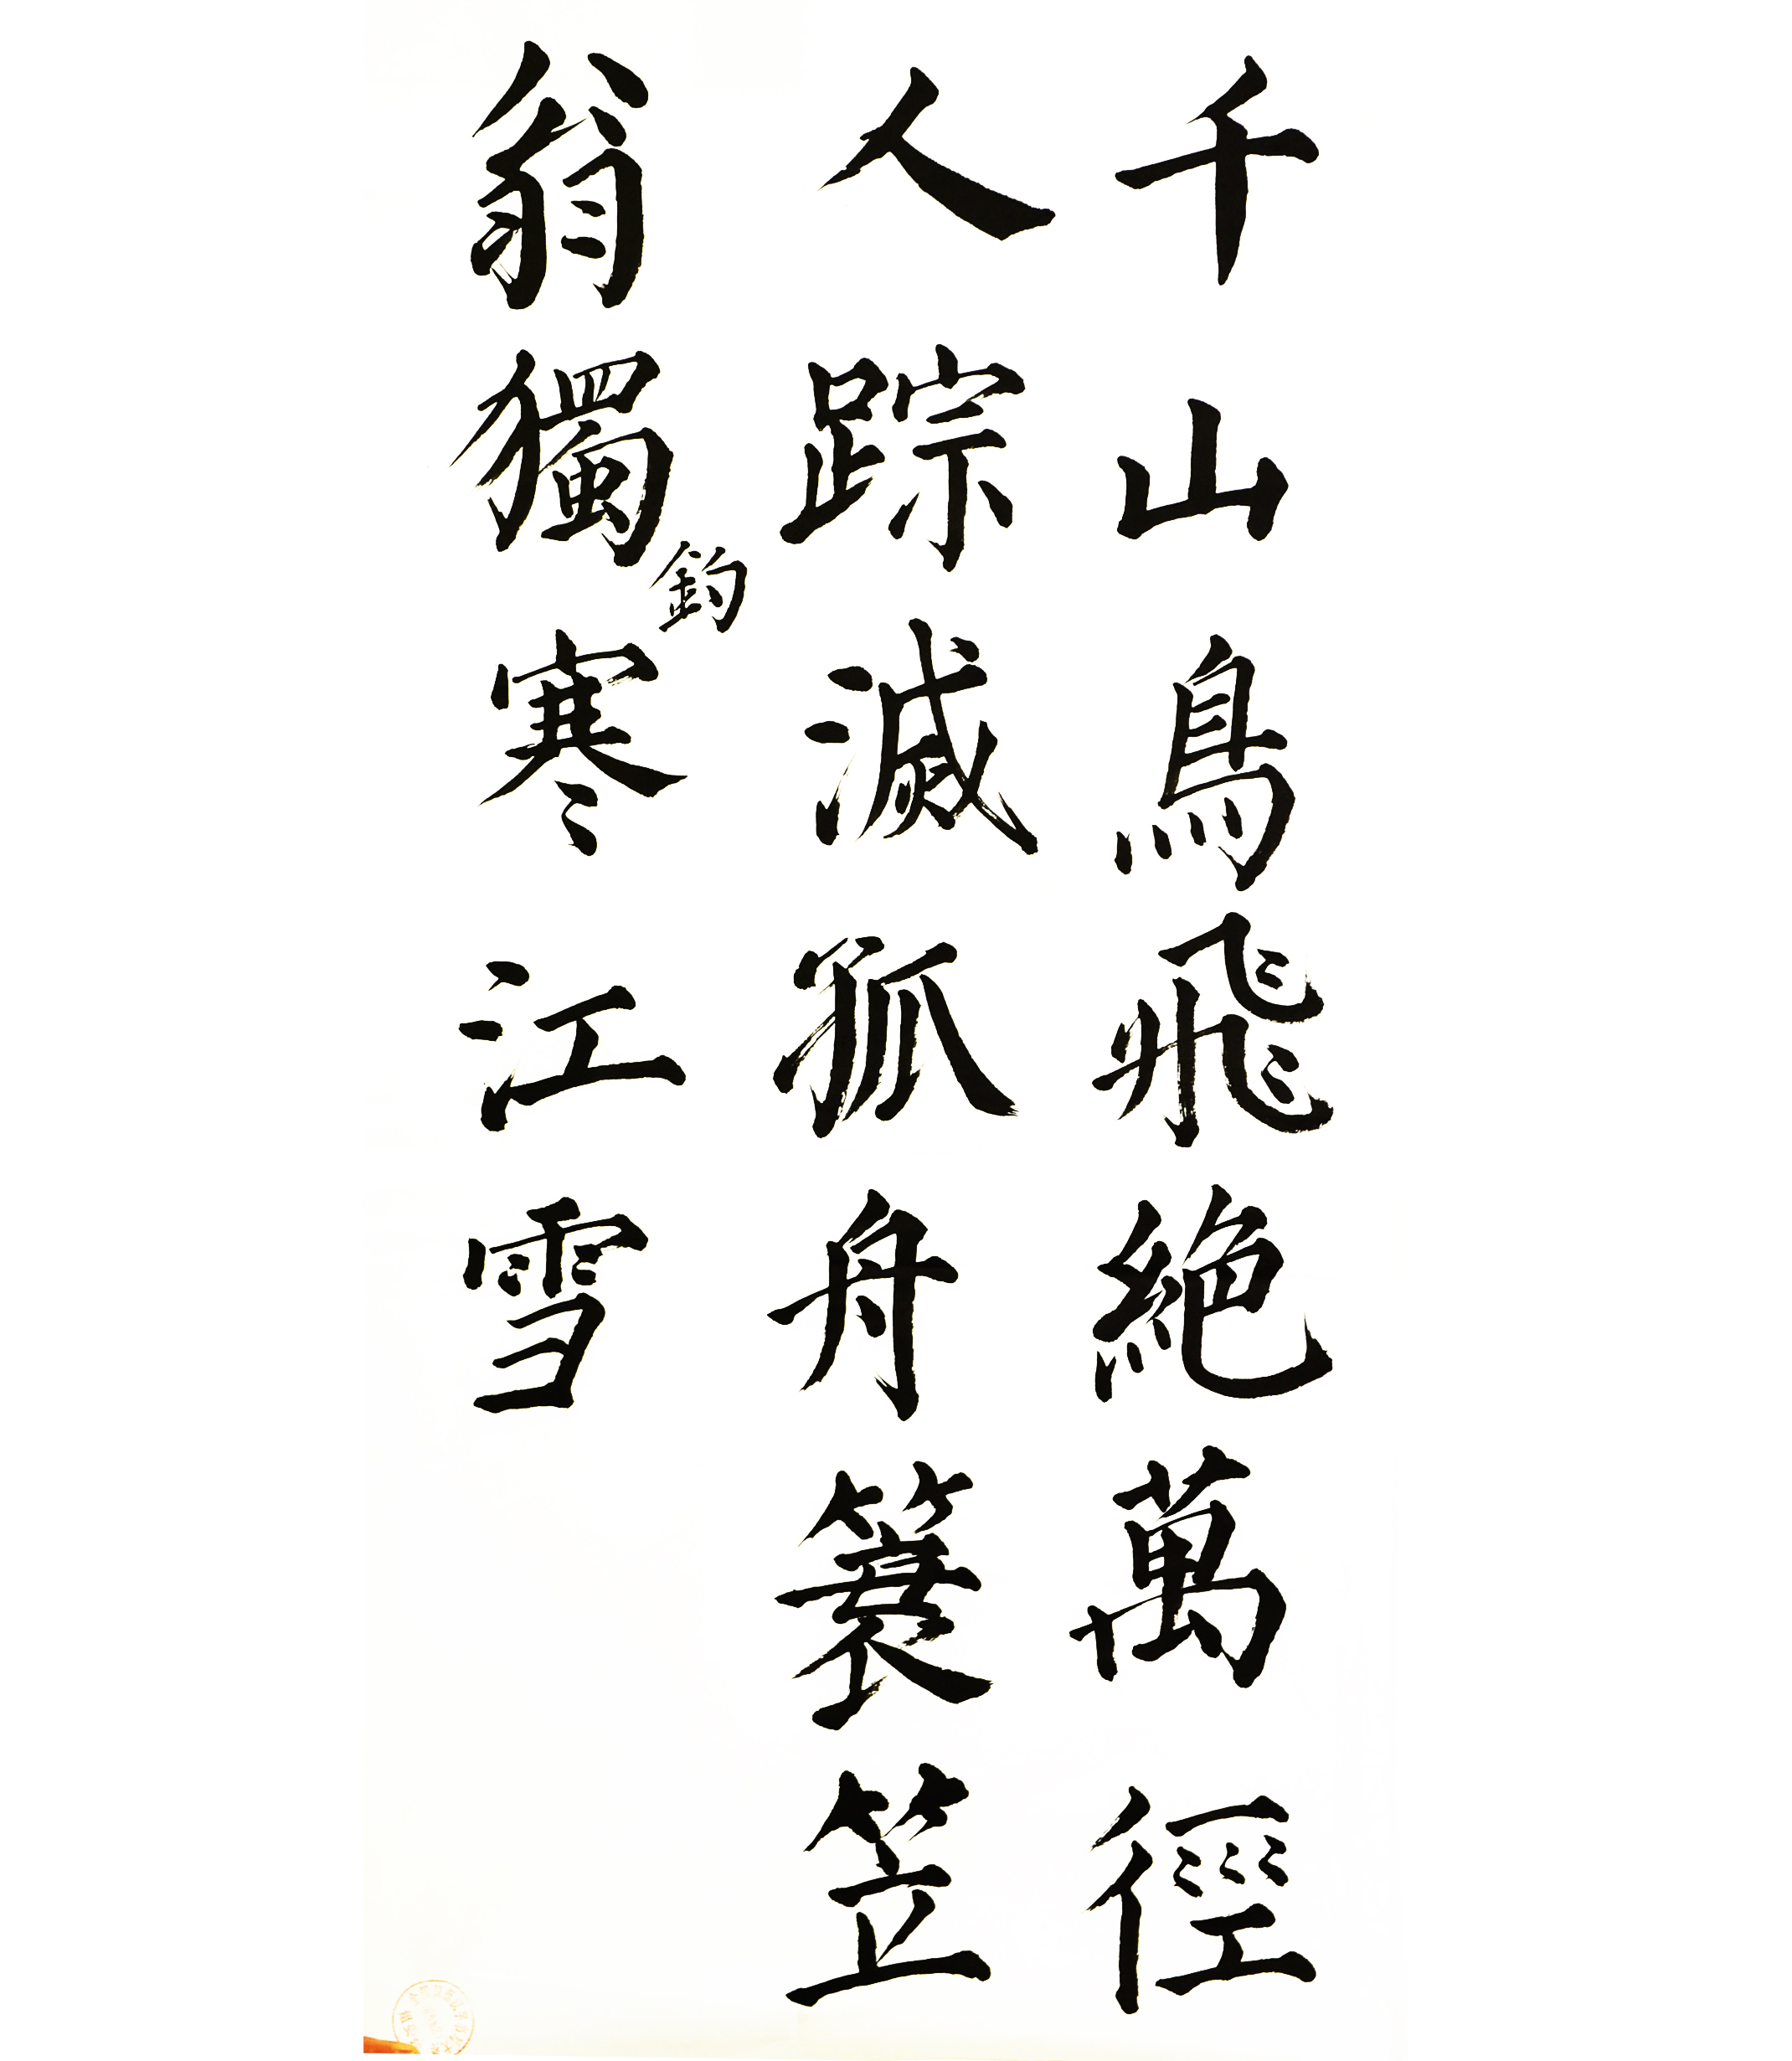 千山鳥飛絶萬徑
人踪滅孤舟簑笠
翁獨釣寒江雪